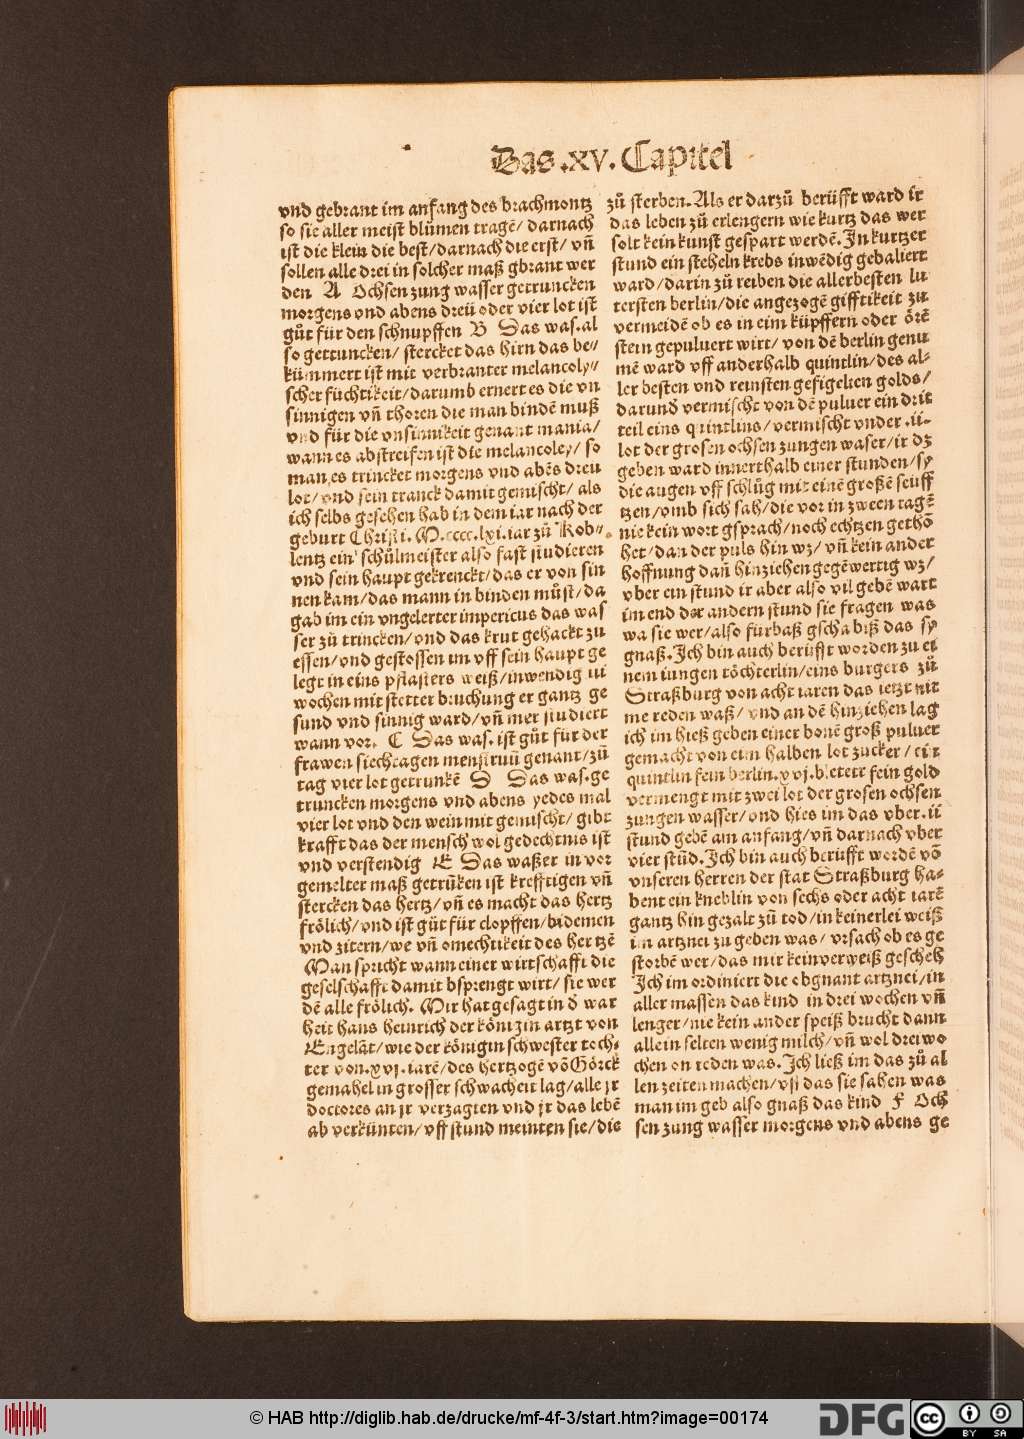 Das .xv. Capitel
vnd gebrant im anfang des brachmontz
so sie aller meist blůmen tragē/ darnach
ist die klein die best/darnach die erst/ vñ
sollen alle drei in solcher maß gbrant wer
den A Ochsen zung wasser getruncken
morgens vnd abens dreü oder vier lot ist
gůt für den schnupffen B Das was.al
so gettuncken/ stercket das hirn das be⸗
kümmert ist mit verbranter melancoly⸗
scher füchtikeit/darumb ernert es die vn
sinnigen vñ thoren die man bindē muß
vnd für die vnsinnikeit genant mania/
wann es abstreifen ist die melancoley/ so
man es trincket morgens vnd abēs dreu
lot/vnd sein tranck damit gemischt/ als
ich selbs gesehen hab in dem iar nach der
geburt Christi.M.cccc.lxi.iar zů Kob⸗
lentz ein schůlmeister also fast studieren
vnd sein haupt gekrenckt/das er von sin
nen kam/das mann in binden můst/da
gab im ein vngelerter impericus das was
ser zů trincken/vnd das krut gehackt zu
essen/vnd gestossen im vff sein haupt ge
legt in eins pflasters weiß/inwendig iii
wochen mit stetter bruchung er gantz ge
sund vnd sinnig ward/vñ mer studiert
wann vor. C Das was. ist gůt für der
frawen siechtagen menstruū genant/zů
tag vier lot getrunkē D Das was.ge
truncken morgens vnd abens yedes mal
vier lot vnd den wein mit gemischt/ gibt
krafft das der mensch wol gedechtnis ist
vnd verstendig E Das waßer in vor
gemelter maß getrūken ist krefftigen vñ
stercken das hertz/vñ es macht das hertz
frőlich/vnd ist gůt für clopffen/bidemen
vnd zitern/we vñ omechtikeit des hertzē
Man spricht wann einer wirtschafft die
geselschafft damit bsprengt wirt/ sie wer
dē alle frőlich. Mir hat gesagt in d̄ war
heit hans heinrich der kőnigin artzt von
Engelāt/wie der kőnigin schwester toch⸗
ter von.xvj.iarē/des hertzogē vō Gőrck
gemahel in grosser schwacheit lag/alle jr
doctores an jr verzagten vnd jr das lebē
ab verkünten/vff stund meinten sie/die
zů sterben.Als er darzů berüfft ward ir
das leben zů erlengern wie kurtz das wer
solt kein kunst gespart werdē.In kurtzer
stund ein steheln krebs inwēdig gebaliert
ward/darin zů reiben die allerbesten lu
tersten berlin/die angezogē gifftikeit zu
vermeidē ob es in eim küpffern oder őrē
stein gepuluert wirt/ von dē berlin genu
mē ward vff anderhalb quintlin/des al⸗
ler besten vnd reinsten gefigelten golds/
darund̄ vermischt von dē puluer ein drit
teil eins quintlins/vermischt vnder .ii⸗
lot der grosen ochsen zungen waser/ir dz
geben ward innerthalb einer stunden/sy
die augen vff schlůg mit einē großē seuff
tzen/vmb sich sah/die vor in zween tagē
nie kein wort gsprach/noch echtzen gethō
het/dan der puls hin wz/vñ kein ander
hoffnung dañ hinziehen gegēwertig wz/
vber ein stund ir aber also vil gebē wart
im end der andern stund sie fragen was
wa sie wer/also fürbaß gscha biß das sy
gnaß.Ich bin auch berüfft worden zu ei
nem iungen tőchterlin/eins burgers zů
Straßburg von acht iaren das ietzt nit
me reden waß/ vnd an dē hinziehen lag
ich im hieß geben einer bonē groß puluer
gemacht von eim halben lot zucker/ ein
quintlin fein berlin.xvj.bletetr fein gold
vermengt mit zwei lot der grosen ochsen
zungen wasser/vnd hies im das vber.ii
stund gebē am anfang/vñ darnach vber
vier stūd.Ich bin auch berüfft wordē vō
vnseren herren der stat Straßburg ha⸗
bent ein kneblin von sechs oder acht iarē
gantz hin gezalt zů tod/in keinerlei weiß
im artznei zu geben was/ vrsach ob es ge
storbē wer/das mir kein verweiß gescheh
Ich im ordiniert die obgnant artznei/in
aller massen das kind in drei wochen vñ
lenger/nie kein ander speiß brucht dann
allein selten wenig milch/vñ wol drei wo
chen on reden was.Ich ließ im das zů al
len zeiten machen/vñ das sie sahen was
man im geb also gnaß das kind F Och
sen zung wasser morgens vnd abens ge
© HAB http://diglib.hab.de/drucke/mf-4f-3/start.htm?image=00174
DFG
cc BY SA